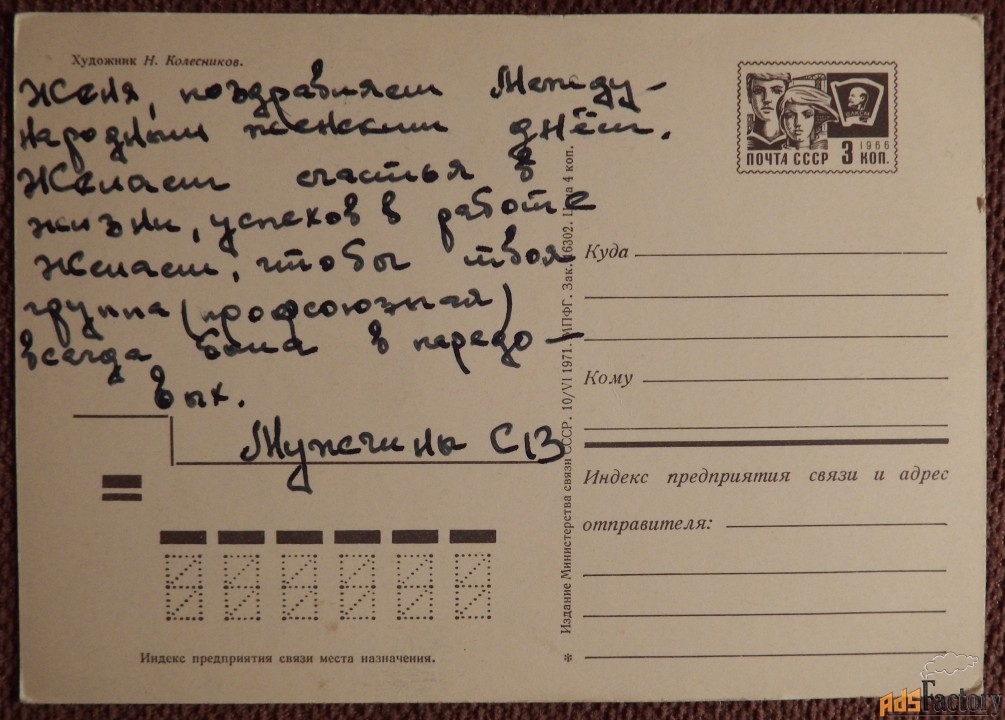 Художник Н. Колесников.
Женя, поздравляем Между-
народным женским днём.
Желаем счастья в
жизни, успехов в работе
Желаем, чтобы твоя
группа (профсоюзная)
всегда была в передо-
вых.
Мужчины С13
ВЛКСМ
1966
ПОЧТА СССР 3 КОП.
Издание Министерства связи СССР. 10/VI 1971. МПФГ. Зак. 6302. Цена 4 коп.
Куда
Кому
Индекс предприятия связи и адрес
отправителя:
*
Индекс предприятия связи места назначения.
AdsFactory